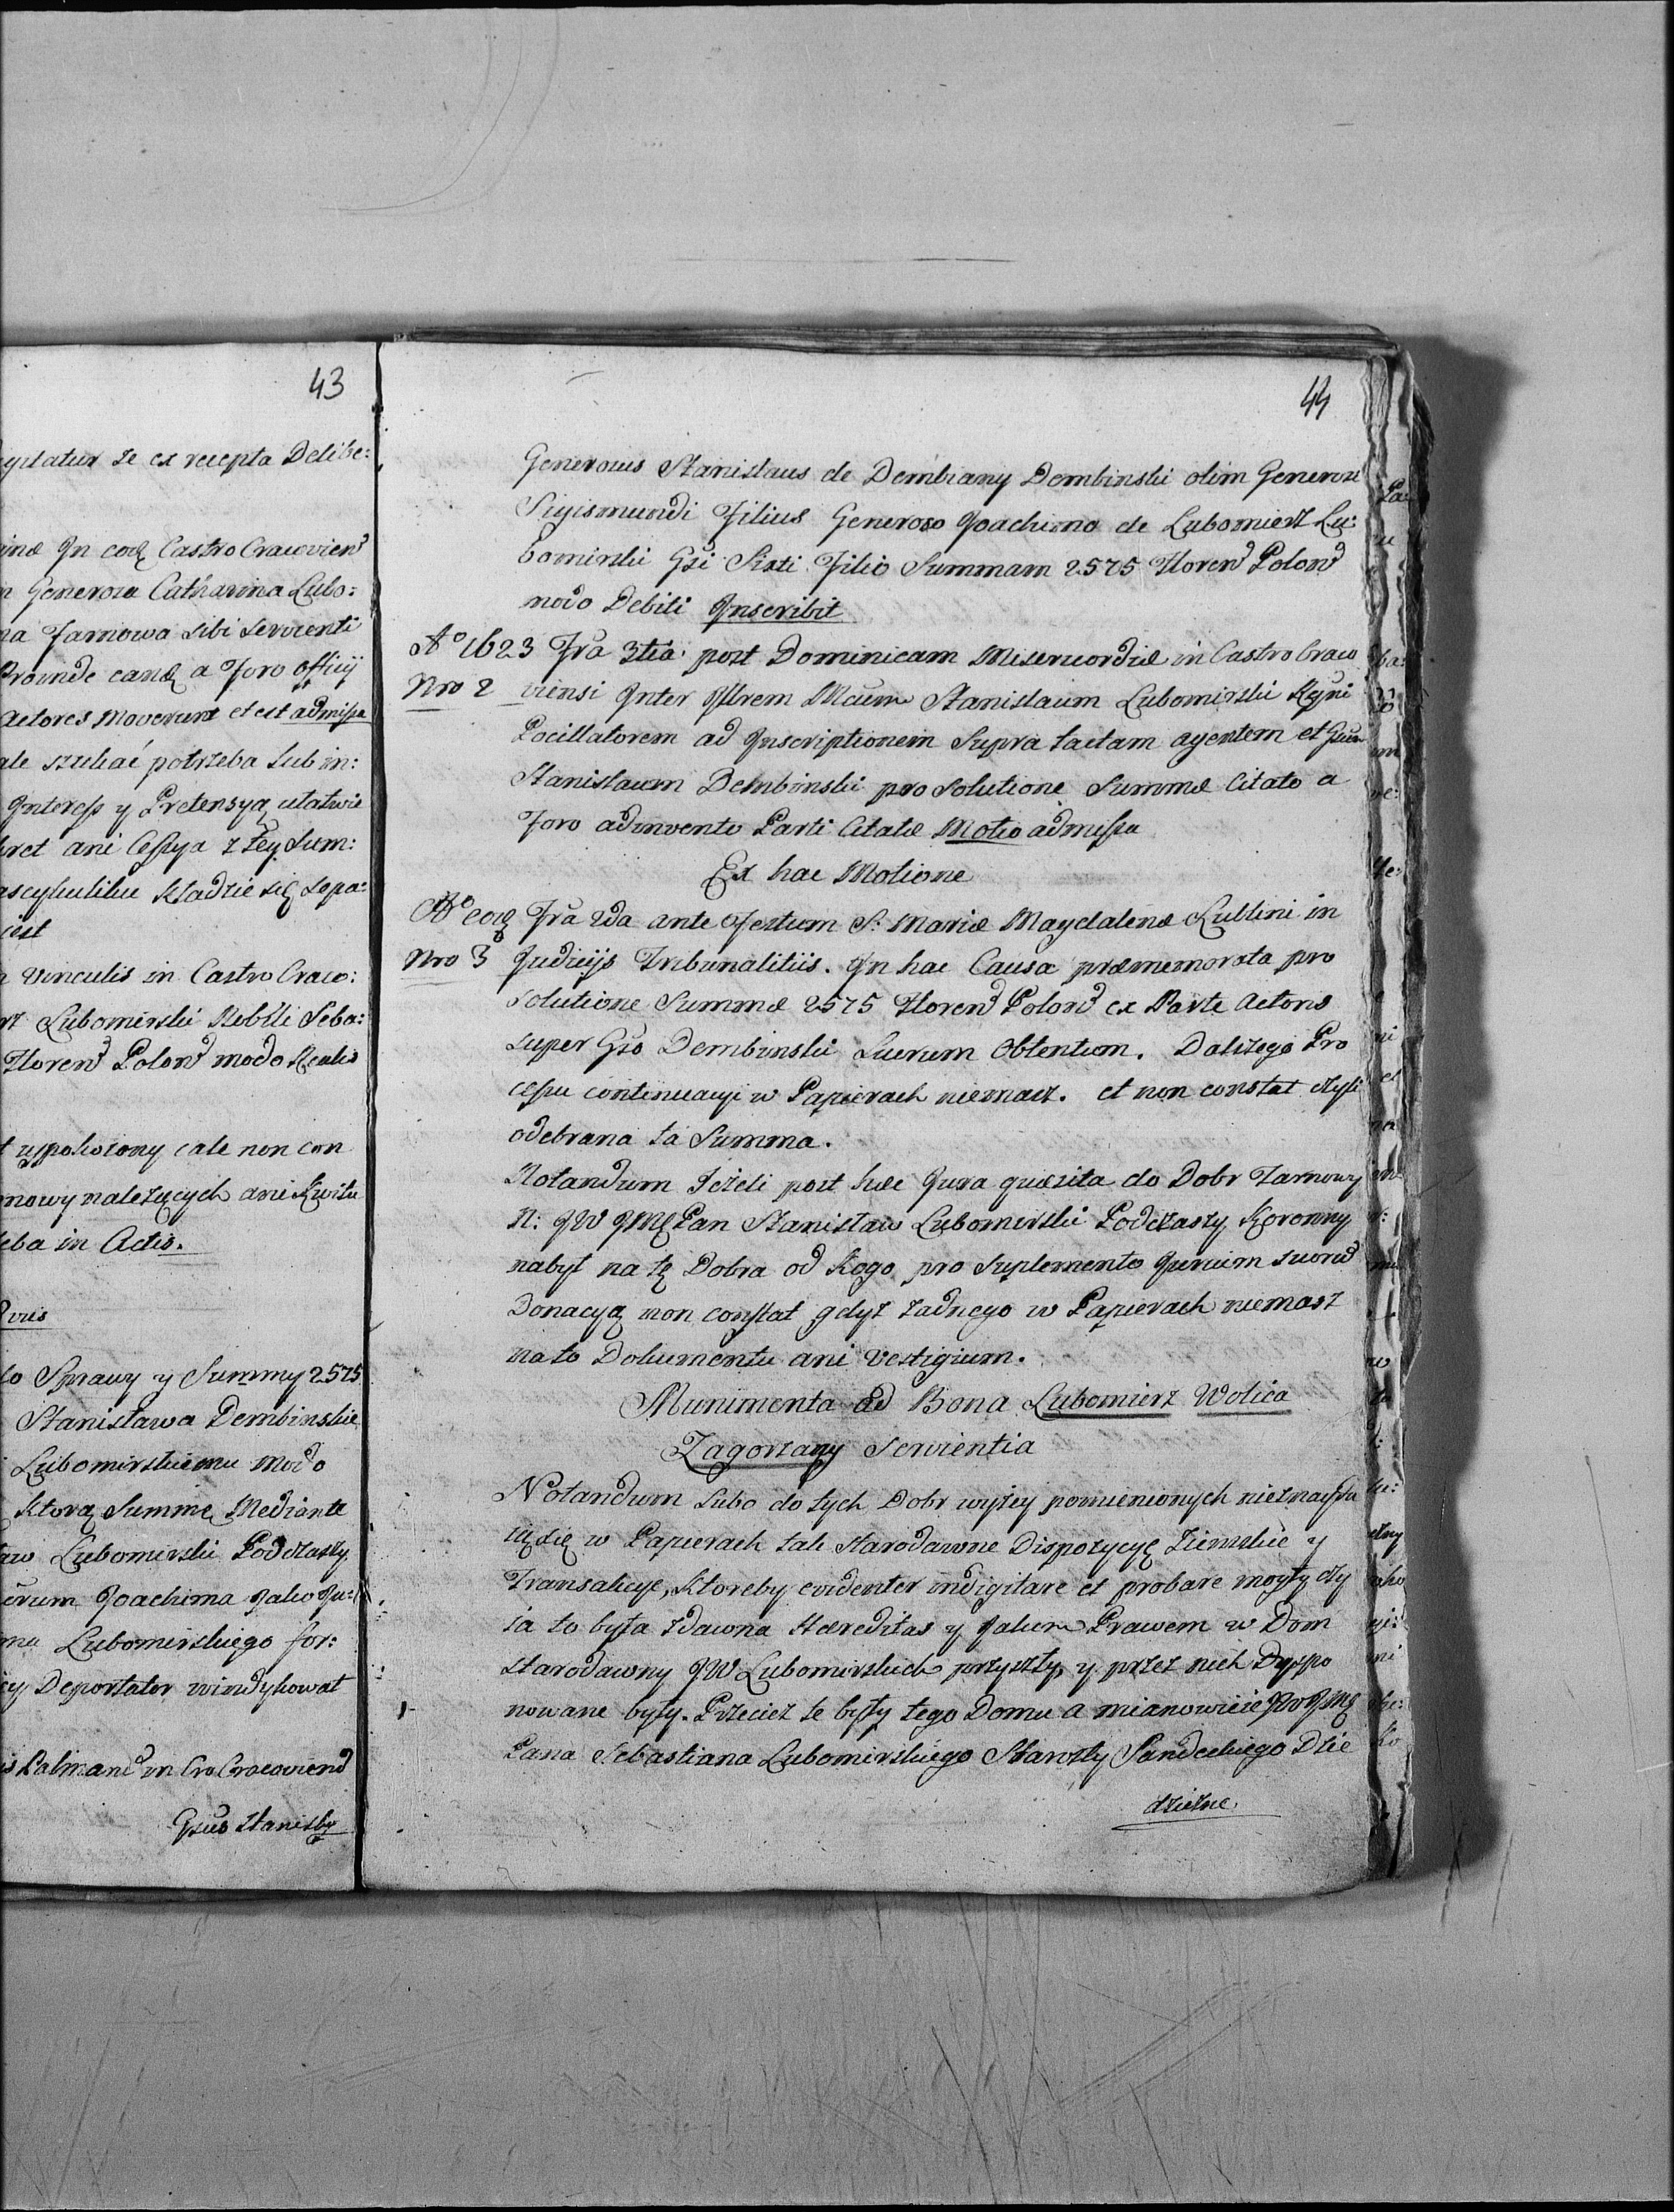 43
se ex recepta Delibe:
In eod Castro Cracovien
Generosa Catharina Lubo:
Jarnowa sibi servienti
Proinde eand a Foro Officij
Actores Moverunt et est admissa
szukać potrzeba lub in:
Interess y Pretensyą ułatwie
ani Cessya z tey Sum:
kładzie się sepa:
iest
vinculis in Castro Craco:
Lubomirski Nobili Seba:
Floren Polon modo Realis
cale non con
należących ani Kwitu
in Actis.
Sprawy y Summy 2575
Stanisława Dembinskie
Lubomirskiemu Modo
Ktorą Summę Mediante
Lubomirski Podczaszy
Joachima jako Ju:
Lubomirskiego for:
Deportator windykował
Palmand in Cro Cracoviend
Gsus Stanisły
44
Generosus Stanislaus de Dembiany Dembinski olim Generosi
Sigismundi Filius Generoso Joachimo de Lubomierz Lu:
bomirski Gsi Sixti Filio Summam 2575 Floren Polon
modo Debiti Inscribit
Aº 1623 Fra 3tia post Dominicam Misericordiæ in Castro Craco
Nro 2 viensi Inter Illrem Mcum Stanislaum Lubomirski Regni
Pocillatorem ad Inscriptionem Supra tactam agentem et Gsum
Stanislaum Dembinski pro Solutione Summæ Citato a
Foro adinvento Parti Citatæ Motio admissa
Ex hac Motione
Aº eod Fra 2da ante Festum S. Mariæ Magdalenæ Lublini in
Nro 3 Judicijs Tribunalitiis. In hac Causa præmemorata pro
Solutione Summæ 2575 Floren Polon ex Parte Actoris
super Gso Dembinski Lucrum Obtentum. Dalszego Pro
cessu continuacyi w Papierach niemasz. et non constat czyli
odebrana ta Summa.
Notandum Jeżeli post hæc Jura quæsita do Dobr Jarnowy
N: JW JMę Pan Stanisław Lubomirski Podczaszy Koronny
nabył na tę Dobra od Kogo pro Suplemento Jurium suorum
Donacyą non constat gdyż żadnego w Papierach niemasz
na to Dokumentu ani Vestigium.
Munimenta ad Bona Lubomierz Wolica
Zagorzany Servientia
Notandum Lubo do tych Dobr wyżey pomienionych nieznaydu
ią się w Papierach tak starodawne Dispozycye Ziemskie y
Transakcye, ktoreby evidenter indigitare et probare mogły czy
ia to była zdawna Hæreditas y jakiem Prawem w Dom
starodawny JW Lubomirskich przyszły y przez nich Dyspo
nowane były. Przeciez te były tego Domu a mianowicie JW JMę
Pana Sebastiana Lubomirskiego Starosty Sandeckiego Dzie
dziczne